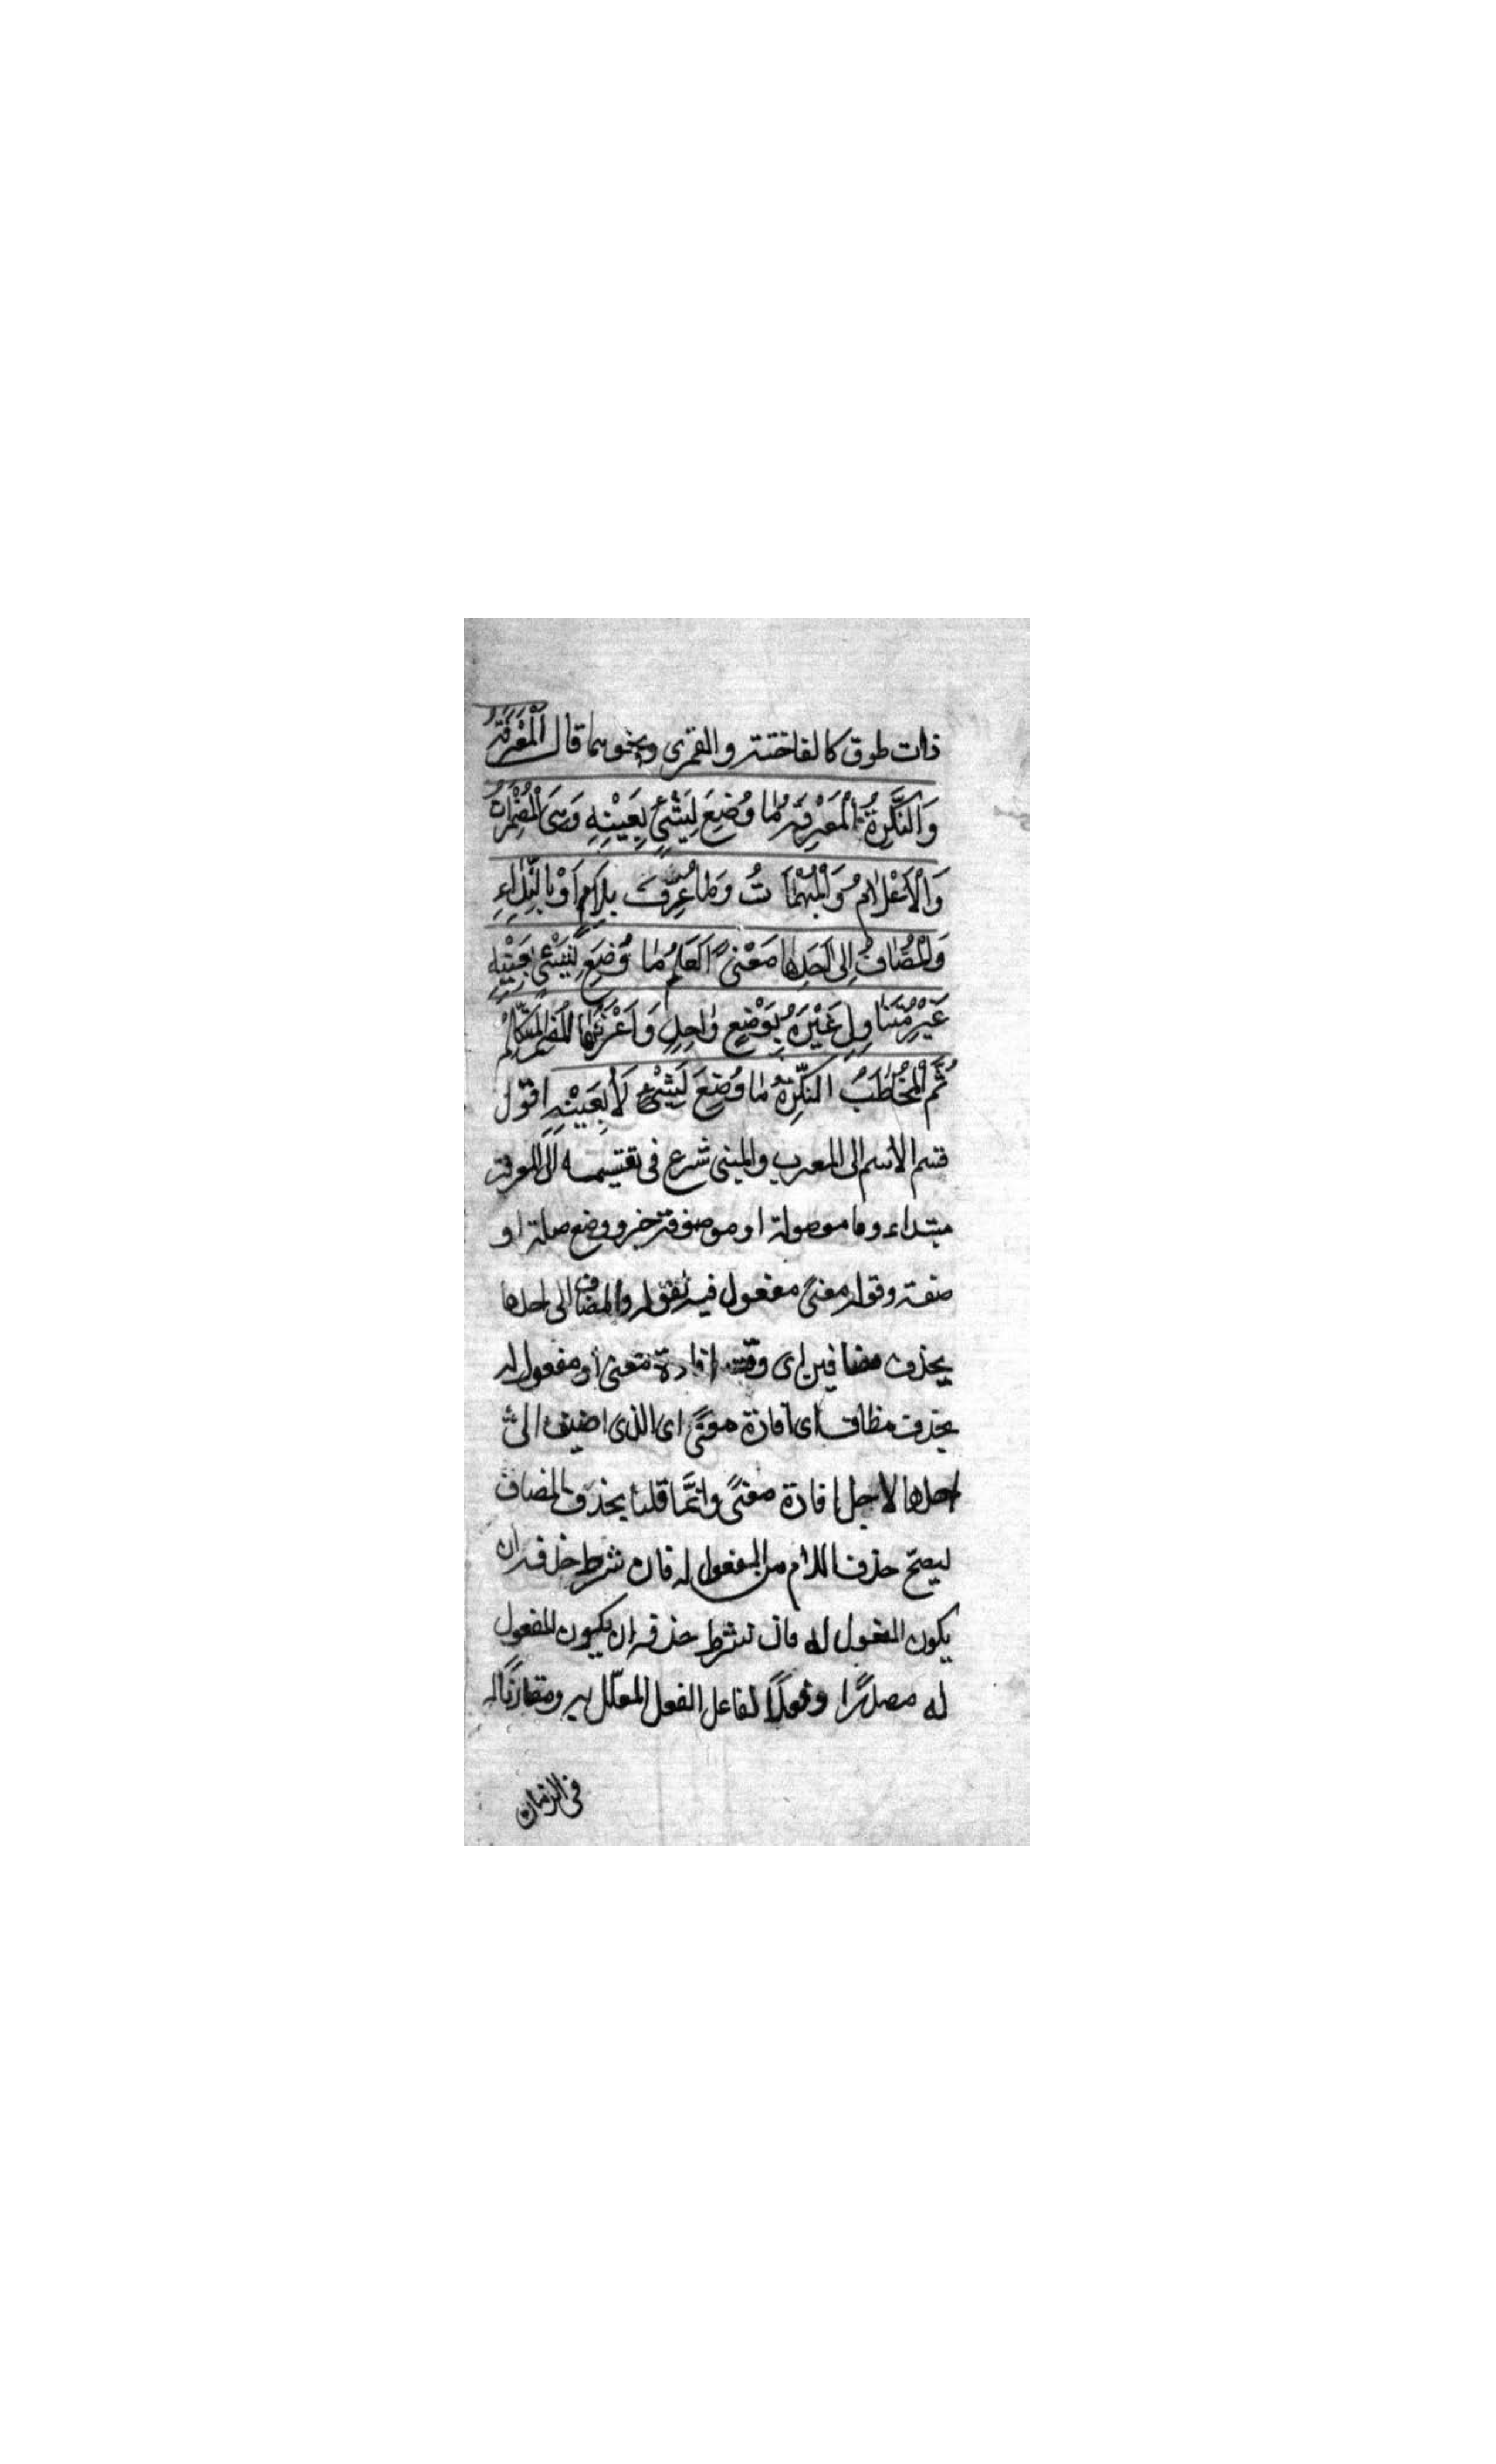 ذات طوق كالفاختة والقمري ونحوهما قال اَلْمَعْرِفَةُ
وَالنَّكِرَةُ اَلْمَعْرِفَةُ مَا وُضِعَ لِشَيْءٍ بِعَيْنِهِ وَهِيَ الْمُضْمَرَاتُ
وَالْاَعْلَامُ وَالْمُبْهَمَاتُ وَمَا عُرِّفَ بِلَامٍ اَوْ بِالنِّدَاءِ
وَالْمُضَافُ اِلَى اَحَدِهَا مَعْنًى اَلْعَلَمُ مَا وُضِعَ لِشَيْءٍ بِعَيْنِهِ
غَيْرَ مُتَنَاوِلٍ غَيْرَهُ بِوَضْعٍ وَاحِدٍ وَاَعْرَفُهَا الْمُضْمَرُ الْمُتَكَلِّمُ
ثُمَّ الْمُخَاطَبُ اَلنَّكِرَةُ مَا وُضِعَ لِشَيْءٍ لَا بِعَيْنِهِ اقول
قسم الاسم الى المعرب والمبنى شرع فى تقسيمه الى المعرفة
مبتداء وما موصولة او موصوفة خبر ووضع صلة او
صفة وقوله معنًى مفعول فيه لقوله والمضاف الى احدها
بحذف مضافين اى وقت افادة معنى او مفعول له
بحذف مظاف اى افادة معنًى اى الذى اضيف الى
احدها لاجل افادة معنًى وانّما قلنا بحذف المضاف
ليصحّ حذف اللام من المفعول له فان شرط حذفه ان
يكون المفعول له فان شرط حذفه ان يكون المفعول
له مصدرًا وفعلًا لفاعل الفعل المعلّل به ومقارنًا له
فى الزمان